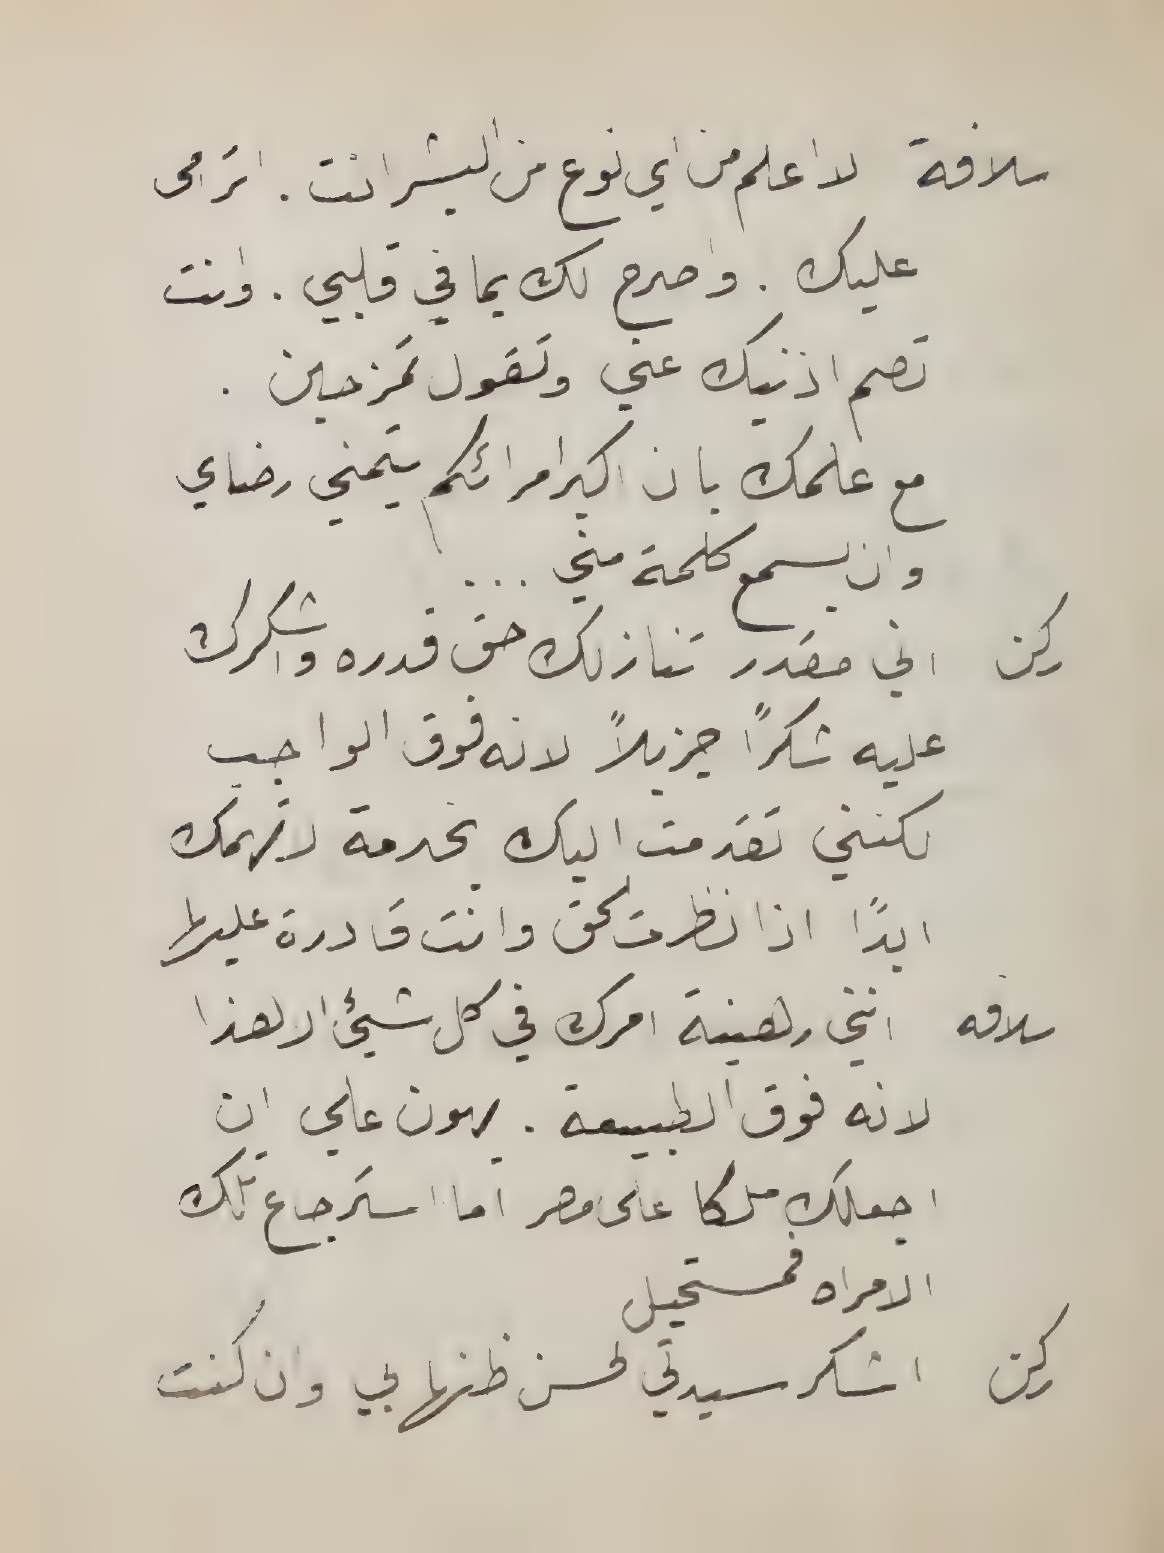 سلافة لا اعلم من اي نوع من البشر انت . اترامى
عليك . واصرح لك بما في قلبي . وانت
تصم اذنيك عني وتقول تمزحين .
مع علمك بان اكبر امرائكم يتمنى رضاي
وان يسمع كلمة مني ...
ركن اني مقدر تنازلك حق قدره واشكرك
عليه شكرًا جزيلاً لانه فوق الواجب
لكنني تقدمت اليك بخدمة لا تهمك
ابدًا اذا نظرت لحق وانت قادرة عليها
سلافه انني رهينة امرك في كل شيئ الا هذا
لانه فوق الطبيعة . يهون علي ان
اجعلك ملكا على مصر اما استرجاع تلك
الامراه فمستحيل
ركن اشكر سيدتي لحسن ظنها بي وان كنت